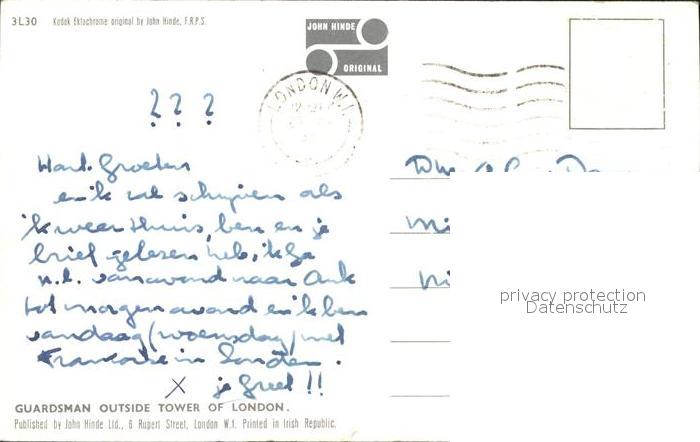 3L30 Kodak Ektachrome original by John Hinde, F.R.P.S.
JOHN HINDE
ORIGINAL
LONDON W.1.
? ? ?
Hart. Groeten
en ik zal schrijven als
ik weer thuis, ben en je
brief gelezen heb, ik ga
n.l. vanavond naar Ank
tot morgen avond en ik ben
vandaag (woensdag) met
Francoise in Londen.
X je Greet !!
privacy protection
Datenschutz
GUARDSMAN OUTSIDE TOWER OF LONDON.
Published by John Hinde Ltd., 6 Rupert Street, London W.1. Printed in Irish Republic.